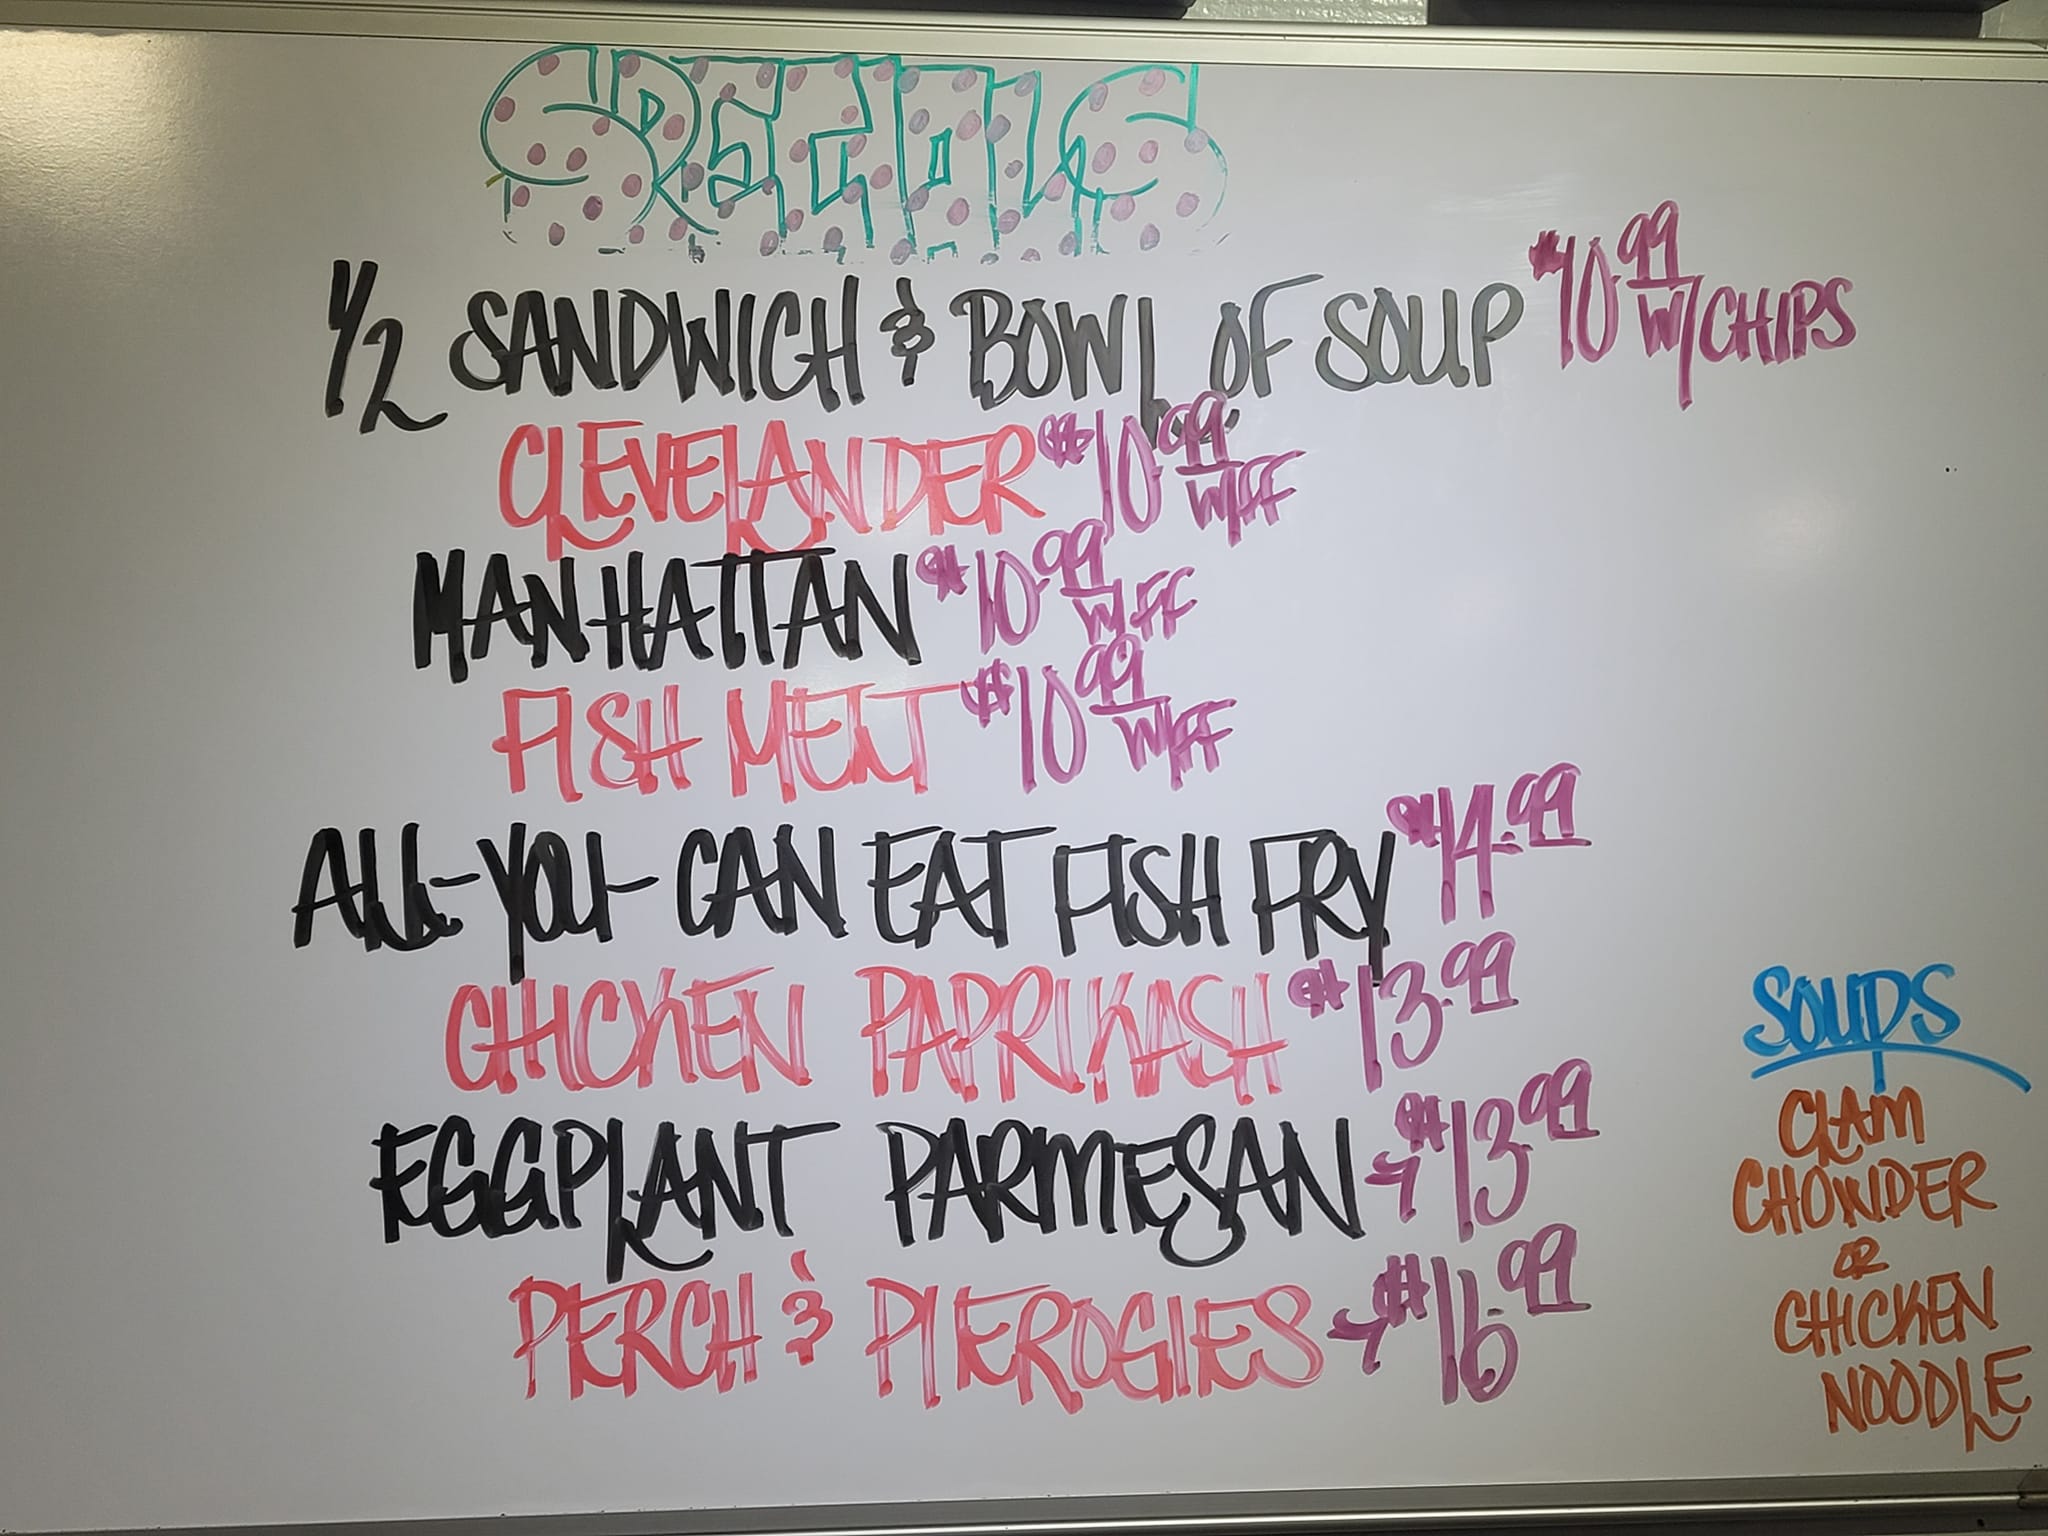 SPECIALS
1/2 SANDWICH & BOWL OF SOUP $10.99 W/CHIPS
CLEVELANDER $10.99 W/FF
MANHATTAN $10.99 W/FF
FISH MELT $10.99 W/FF
ALL-YOU-CAN EAT FISH FRY $14.99
CHICKEN PAPRIKASH $13.99
EGGPLANT PARMESAN $13.99
PERCH & PIEROGIES $16.99
SOUPS
CLAM
CHOWDER
OR
CHICKEN
NOODLE